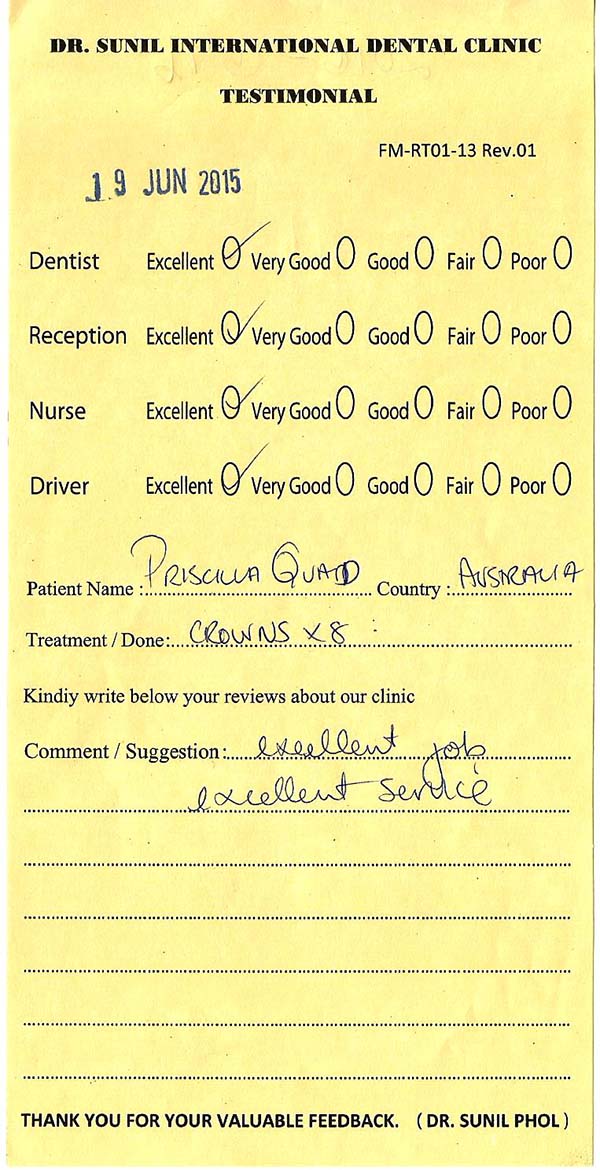 DR. SUNIL INTERNATIONAL DENTAL CLINIC
TESTIMONIAL
FM-RT01-13 Rev.01
19 JUN 2015
Dentist Excellent Very Good Good Fair Poor
Reception Excellent Very Good Good Fair Poor
Nurse Excellent Very Good Good Fair Poor
Driver Excellent Very Good Good Fair Poor
Patient Name : PRISCILLA QUAID Country : AUSTRALIA
Treatment / Done: CROWNS X8
Kindiy write below your reviews about our clinic
Comment / Suggestion: excellent job
excellent service
THANK YOU FOR YOUR VALUABLE FEEDBACK. ( DR. SUNIL PHOL )